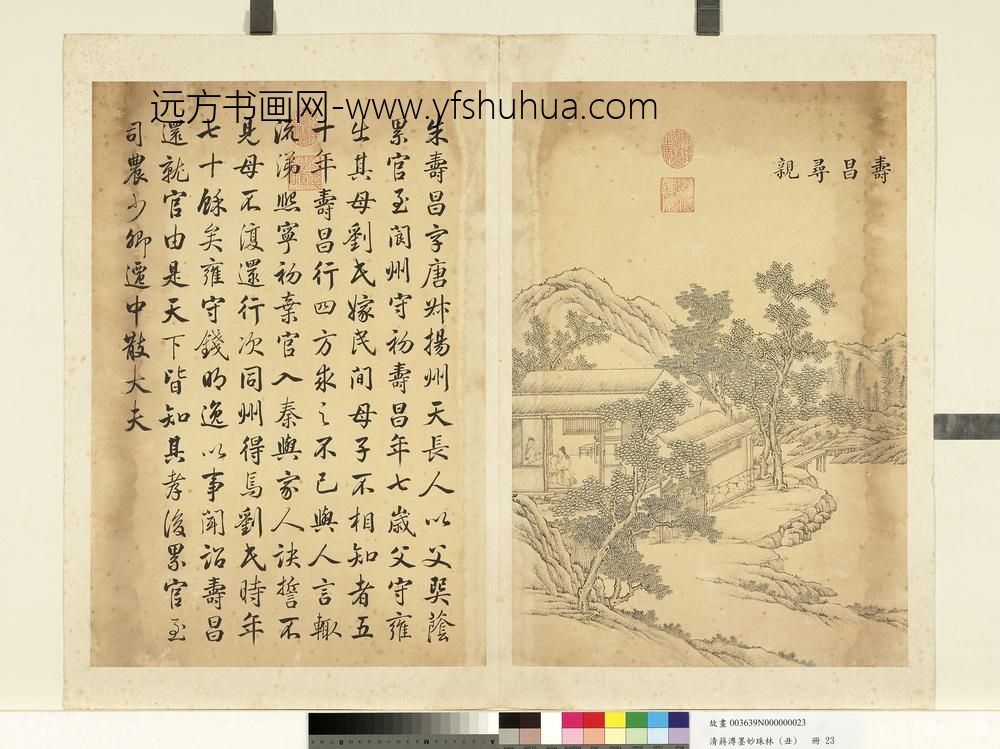 远方书画网-www.yfshuhua.com
壽昌尋親
朱壽昌字唐𭏟揚州天長人以父巽蔭
累官至閬州守初壽昌年七歲父守雍
出其母劉氏嫁民間母子不相知者五
十年壽昌行四方求之不已與人言輙
流涕熙寧初棄官入秦與家人訣誓不
見母不復還行次同州得焉劉氏時年
七十餘矣雍守錢明逸以事聞詔壽昌
還就官由是天下皆知其孝後累官至
司農少卿遷中散大夫
故畫 003639N000000023
清蔣溥墨妙珠林（丑） 冊 23